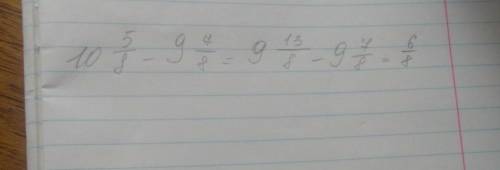 10 5/8 - 9 7/8 = 9 13/8 - 9 7/8 = 6/8